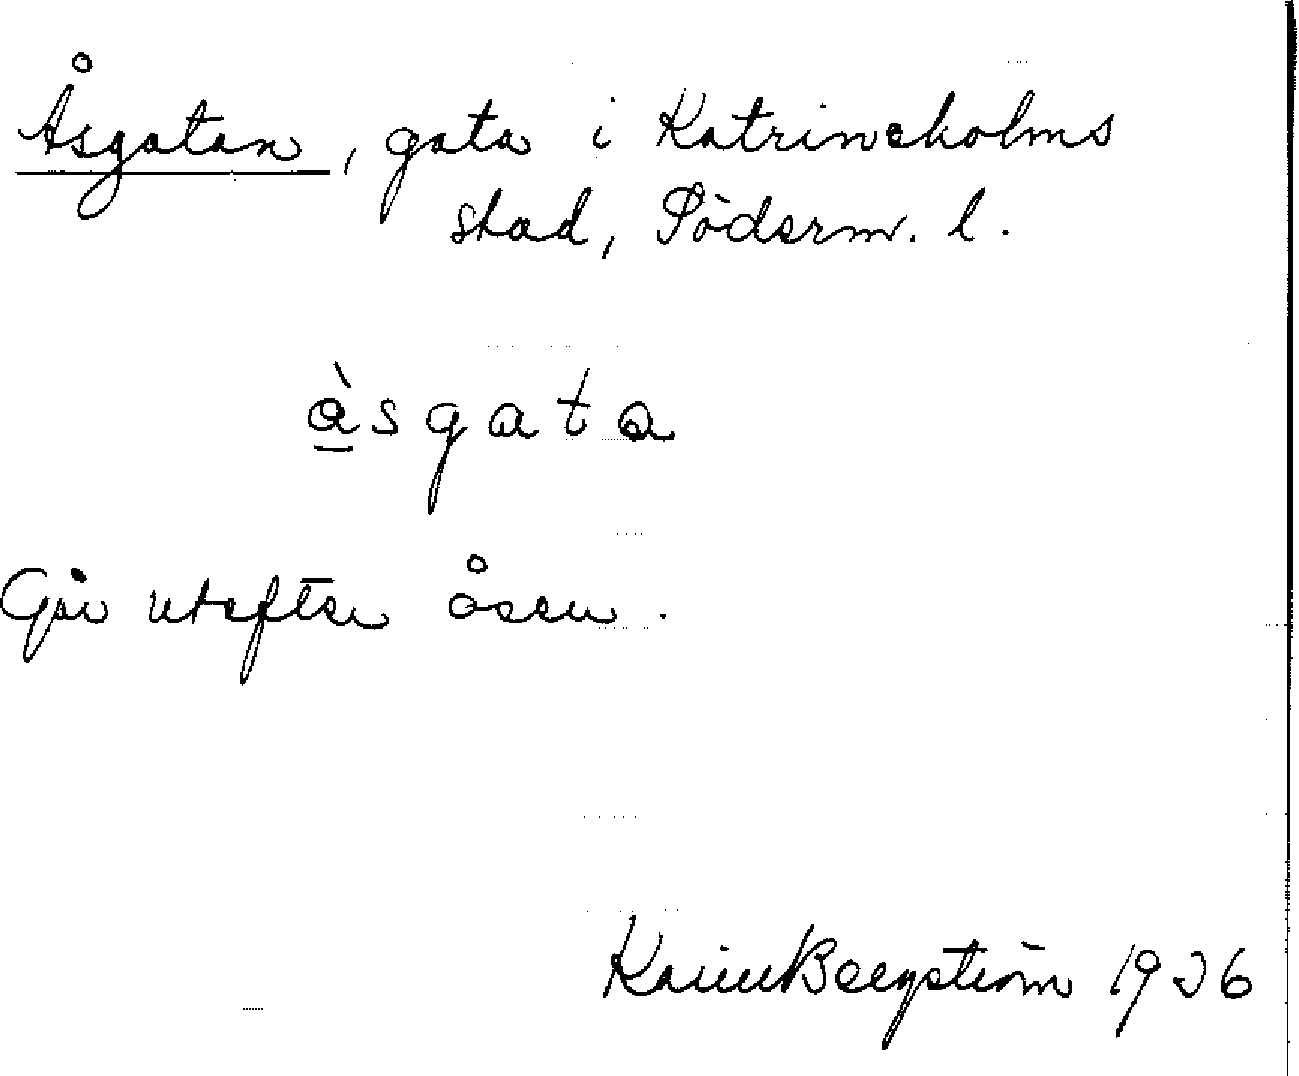 Åsgatan, gata i Katrineholms
stad, Söderm. l.
åsgata
Går utefter åsen.
Karin Bergström 1936